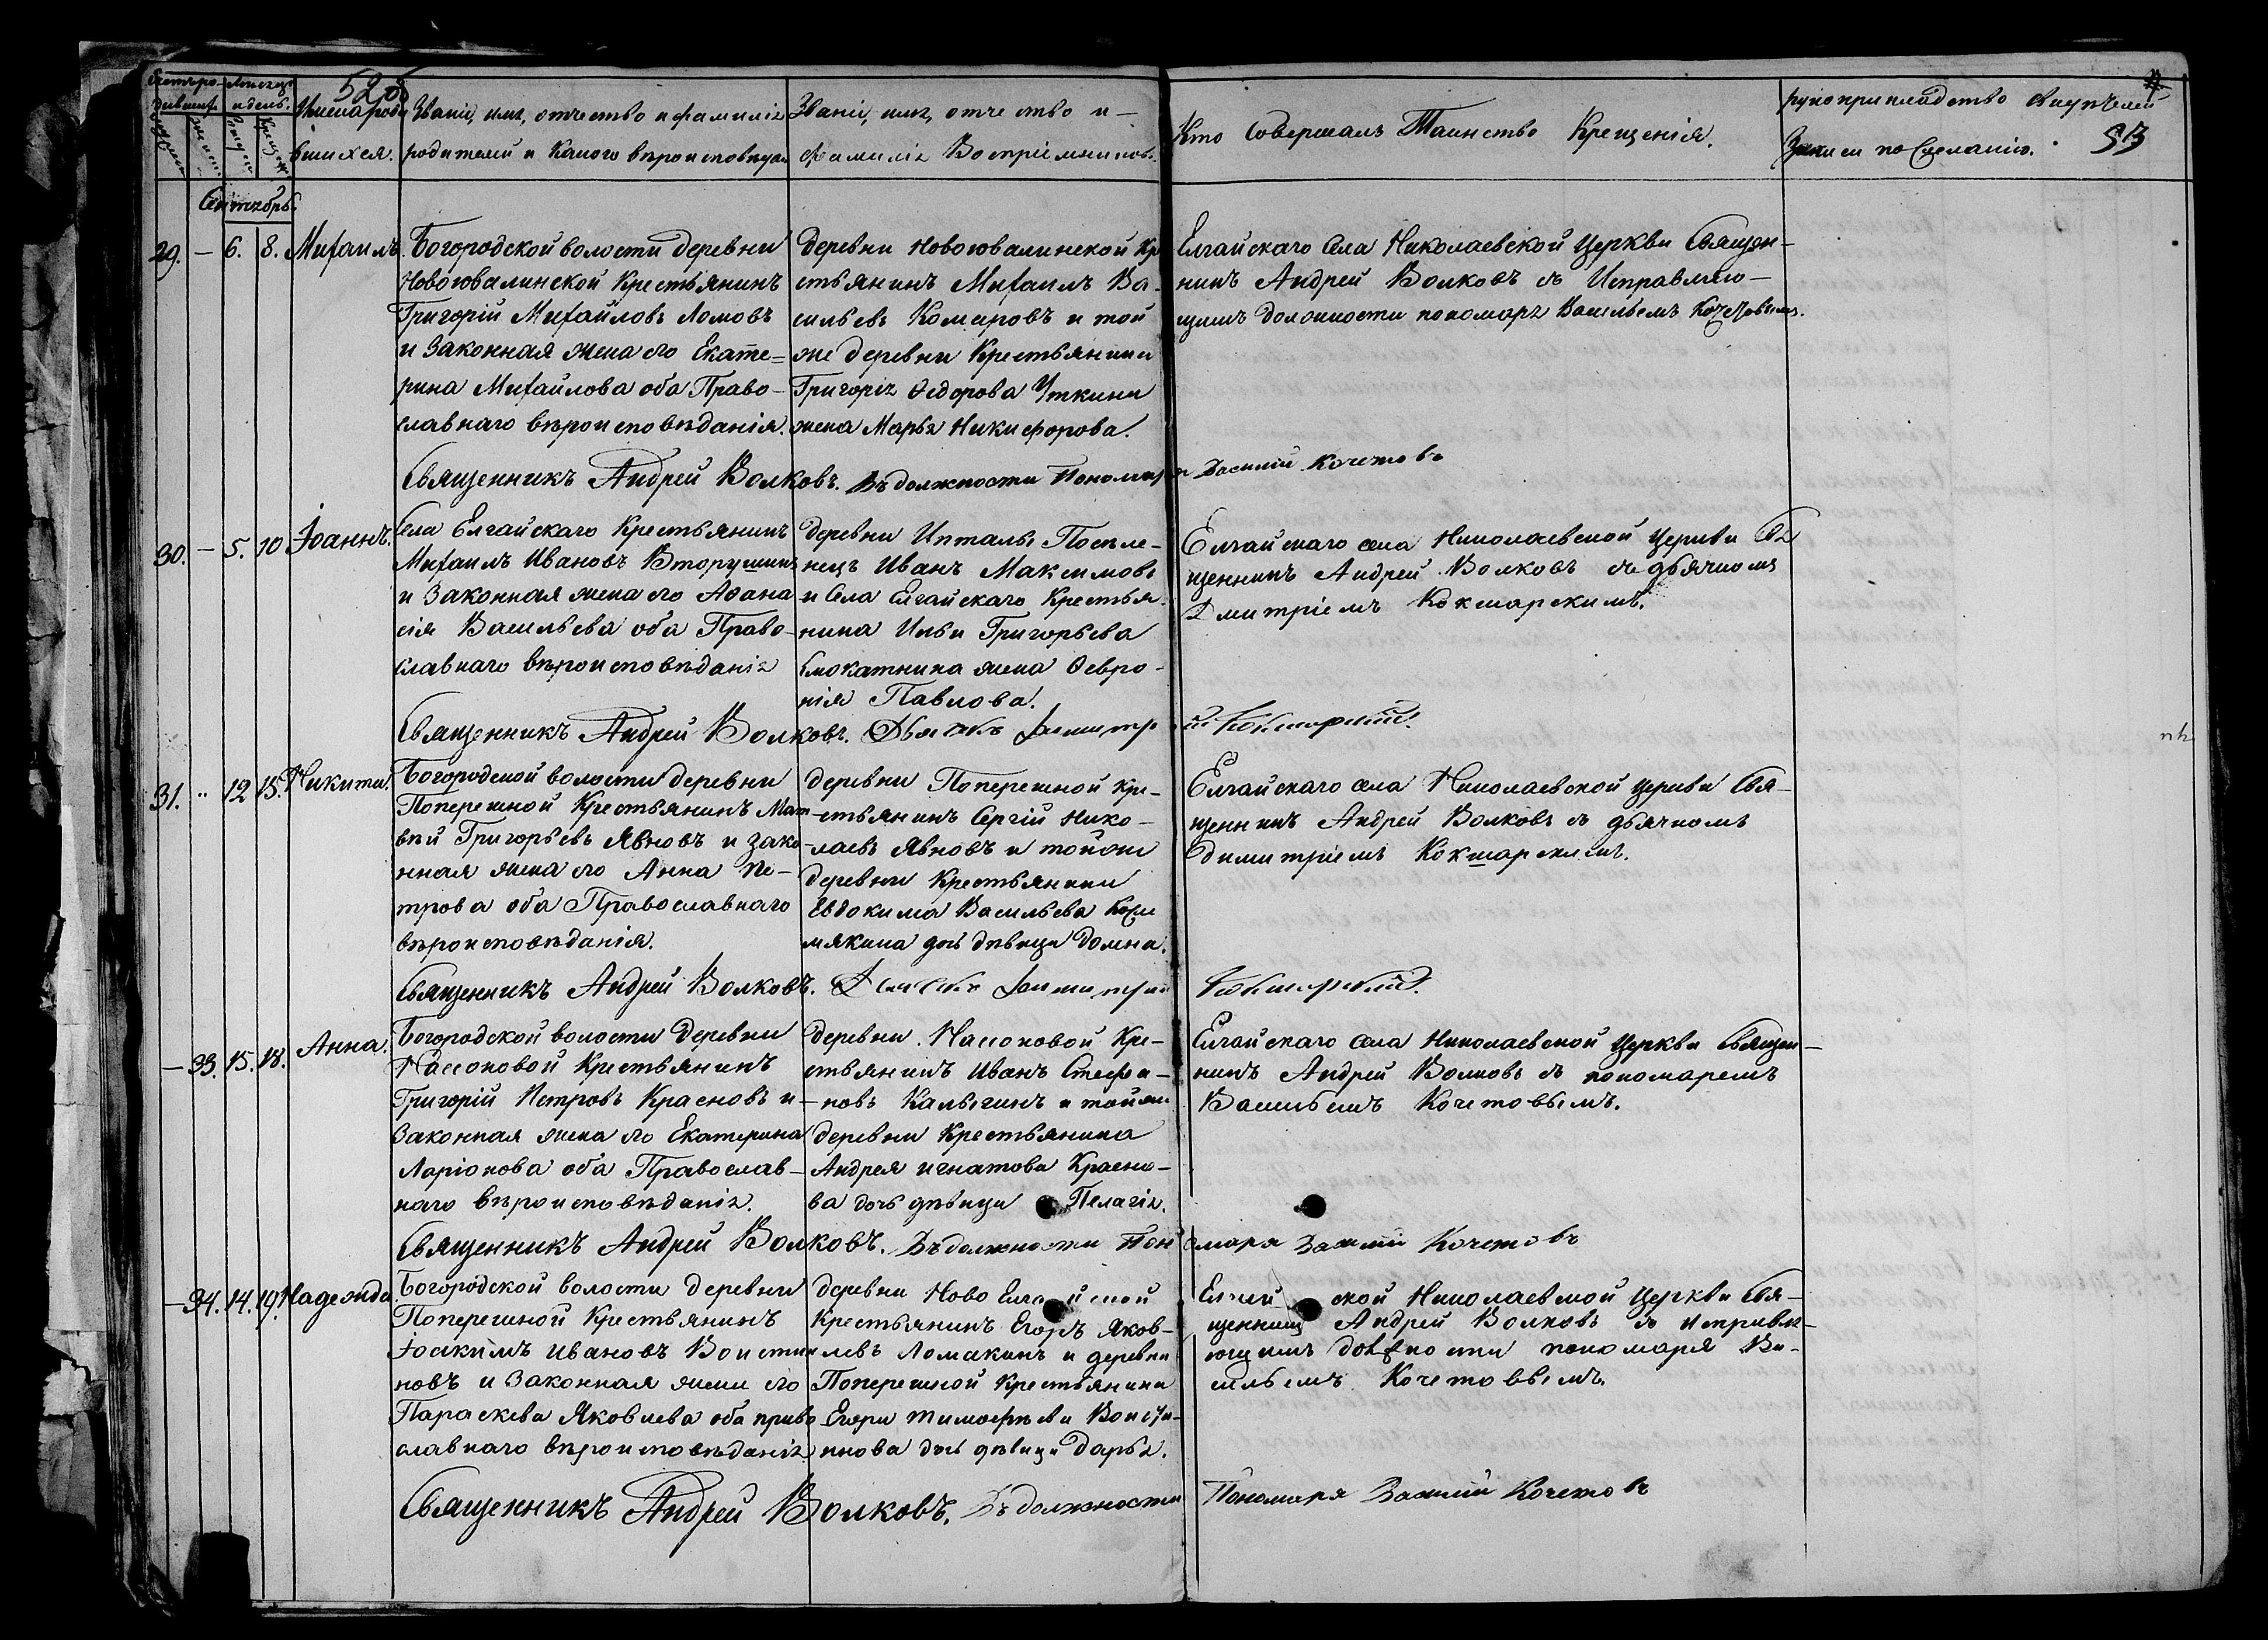 52 об
53
Счетъ ро-
дившихся.
Месяцъ
и день.
Имена роди
вшихся.
Званіе, имя, отчество и фамилія
родителей и какого вѣроисповѣданія
Званіе, имя, отчество и —
фамилія Воспріемниковъ.
Кто Совершалъ Таинство Крещенія.
рукоприкладство свидѣтелей
записи по Желанію.
Сентябрь.
29. — 6. 8. Михаилъ.
Богородской волости деревни
Новоювалинской Крестьянинъ
Григорій Михайловъ Ломовъ
и Законная жена его Екате=
рина Михайлова оба Право-
славнаго вѣроисповѣданія.
деревни Новоювалинской Кре
стьянинъ Михаилъ Ва-
сильевъ Комаровъ и той
же деревни Крестьянина
Григорія Ѳедорова Уткина
жена Марья Никифорова.
Елгайскаго Села Николаевской Церкви Священ-
никъ Андрей Волковъ съ Исправляю-
щимъ должности пономаря Васильемъ Кочетовымъ.
Священникъ Андрей Волковъ. Въ должности Пономаря Василий Кочетовъ
30. — 5. 10 Іоаннъ.
Села Елгайскаго Крестьянинъ
Михаилъ Ивановъ Вторушинъ
и Законная жена его Аѳана
сія Васильева оба Право-
славнаго вѣроисповѣданія
деревни Инталы Поселе-
нецъ Иванъ Максимовъ
и Села Елгайскаго Крестья-
нина Ильи Григорьева
Смокатнина жена Ѳевро-
нія Павлова.
Елгайскаго села Николаевской Церкви Свя
щенникъ Андрей Волковъ съ дьячкомъ
Дмитріемъ Кокшарскимъ.
Священникъ Андрей Волковъ. Дьячекъ Димитрій Кокшарский.
31. " 12 15. Никита.
Богородской волости деревни
Поперешной Крестьянинъ Мат
вѣй Григорьевъ Явновъ и зако
нная жена его Анна Пе-
трова оба Православнаго
вѣроисповѣданія.
деревни Поперешной Кре-
стьянинъ Сергій Нико-
лаевъ Явновъ и тойже
деревни Крестьянина
Евдокима Васильева
мякина дочь дѣвица Домна.
Елгайскаго села Николаевской церкви Свя-
щенникъ Андрей Волковъ съ дьячкомъ
Димитріемъ Кокшарскимъ.
Священникъ Андрей Волковъ. Дьячекъ Димитрий Кокшарский.
— 33. 15. 18. Анна.
Богородской волости деревни
Пассоковой Крестьянинъ
Григорій Петровъ Красновъ и-
Законная жена его Екатерина
Ларіонова оба Православ-
наго вѣроисповѣданія.
деревни Пассоковой Кре-
стьянинъ Иванъ Стефа-
новъ Калыгинъ и тойже
деревни Крестьянина
Андрея Игнатова Красно-
ва дочь дѣвица Пелагія.
Елгайскаго села Николаевской Церкви Священ-
никъ Андрей Волковъ съ пономаремъ
Васильемъ Кочетовымъ.
Священникъ Андрей Волковъ. Въ должности Пономаря Василий Кочетовъ
— 34. 14. 19. Надежда.
Богородской волости деревни
Поперешной Крестьянинъ
Іоакимъ Ивановъ Воисти
новъ и Законная жена его
Параскева Яковлева оба право
славнаго вѣроисповѣданія
деревни Ново Елгайской
Крестьянинъ Егоръ Яков-
левъ Ломакинъ и деревни
Поперешной Крестьянина
Егора Тимоѳѣева Воисти-
нова дочь дѣвица Дарья.
Елгайской Николаевской Церкви Свя-
щенникъ Андрей Волковъ съ исправля-
ющимъ должности пономаря Ва-
сильемъ Кочетовымъ.
Священникъ Андрей Волковъ. Въ должности Пономаря Василий Кочетовъ